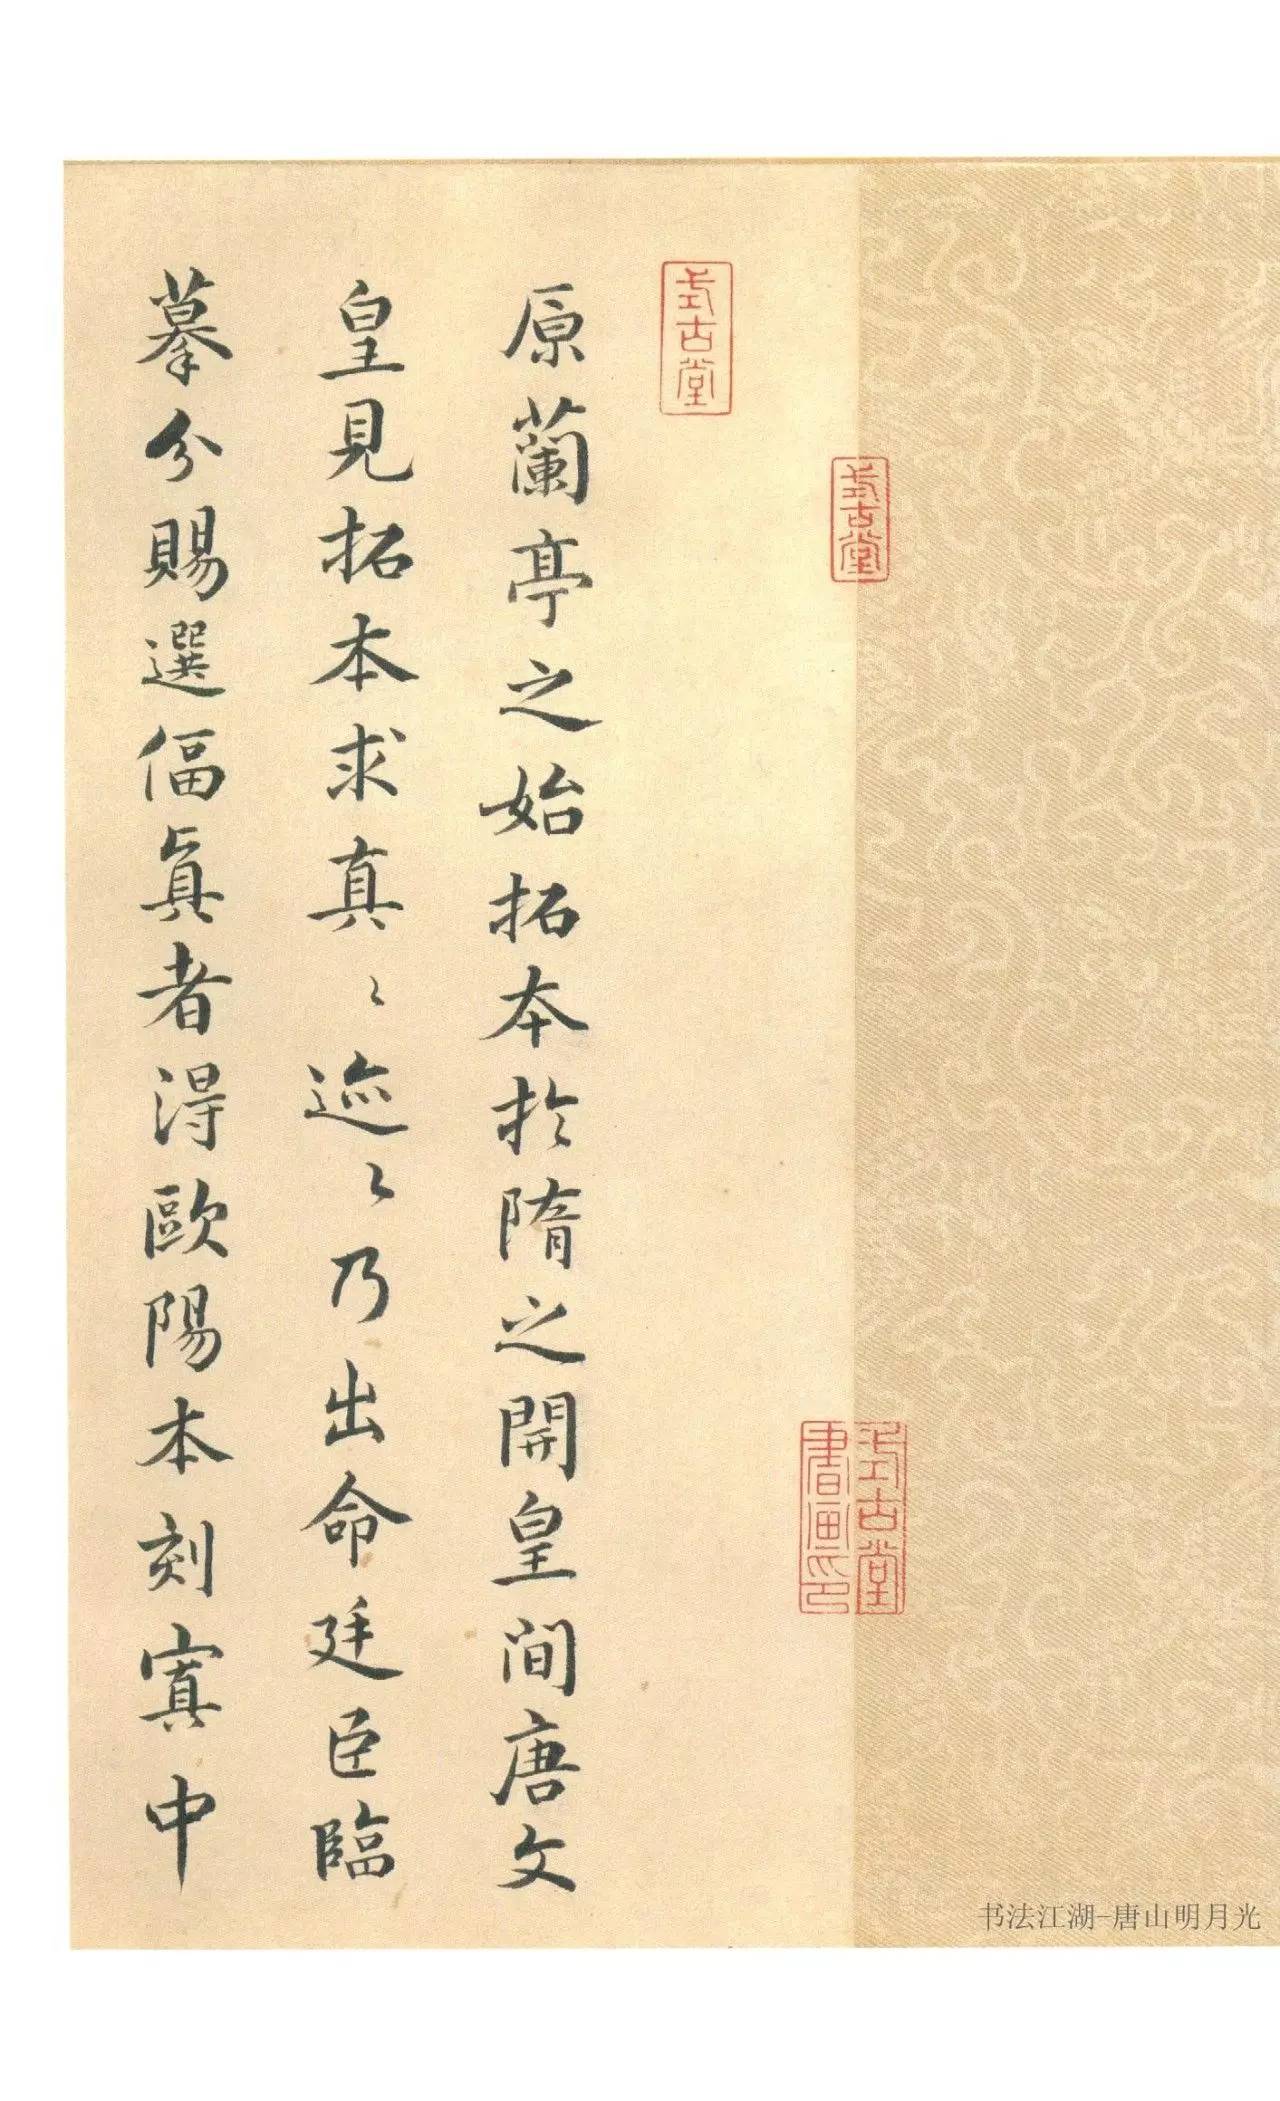 式古堂
式古堂
式古堂
書畫印
原蘭亭之始拓本於隋之開皇間唐文
皇見拓本求真〻迹〻乃出命廷臣臨
摹分賜選偪真者得歐陽本刻寘中
书法江湖-唐山明月光